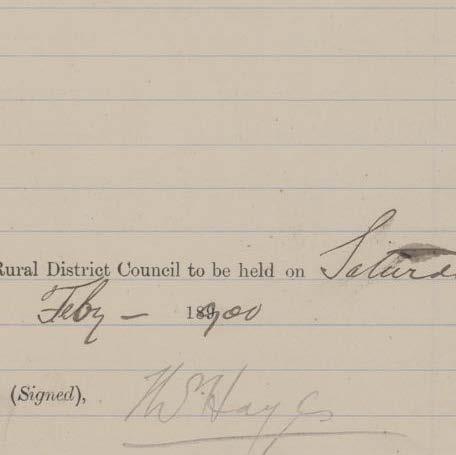 Rural District Council to be held on Saturd
Feby – 1900
(Signed),
Hayes